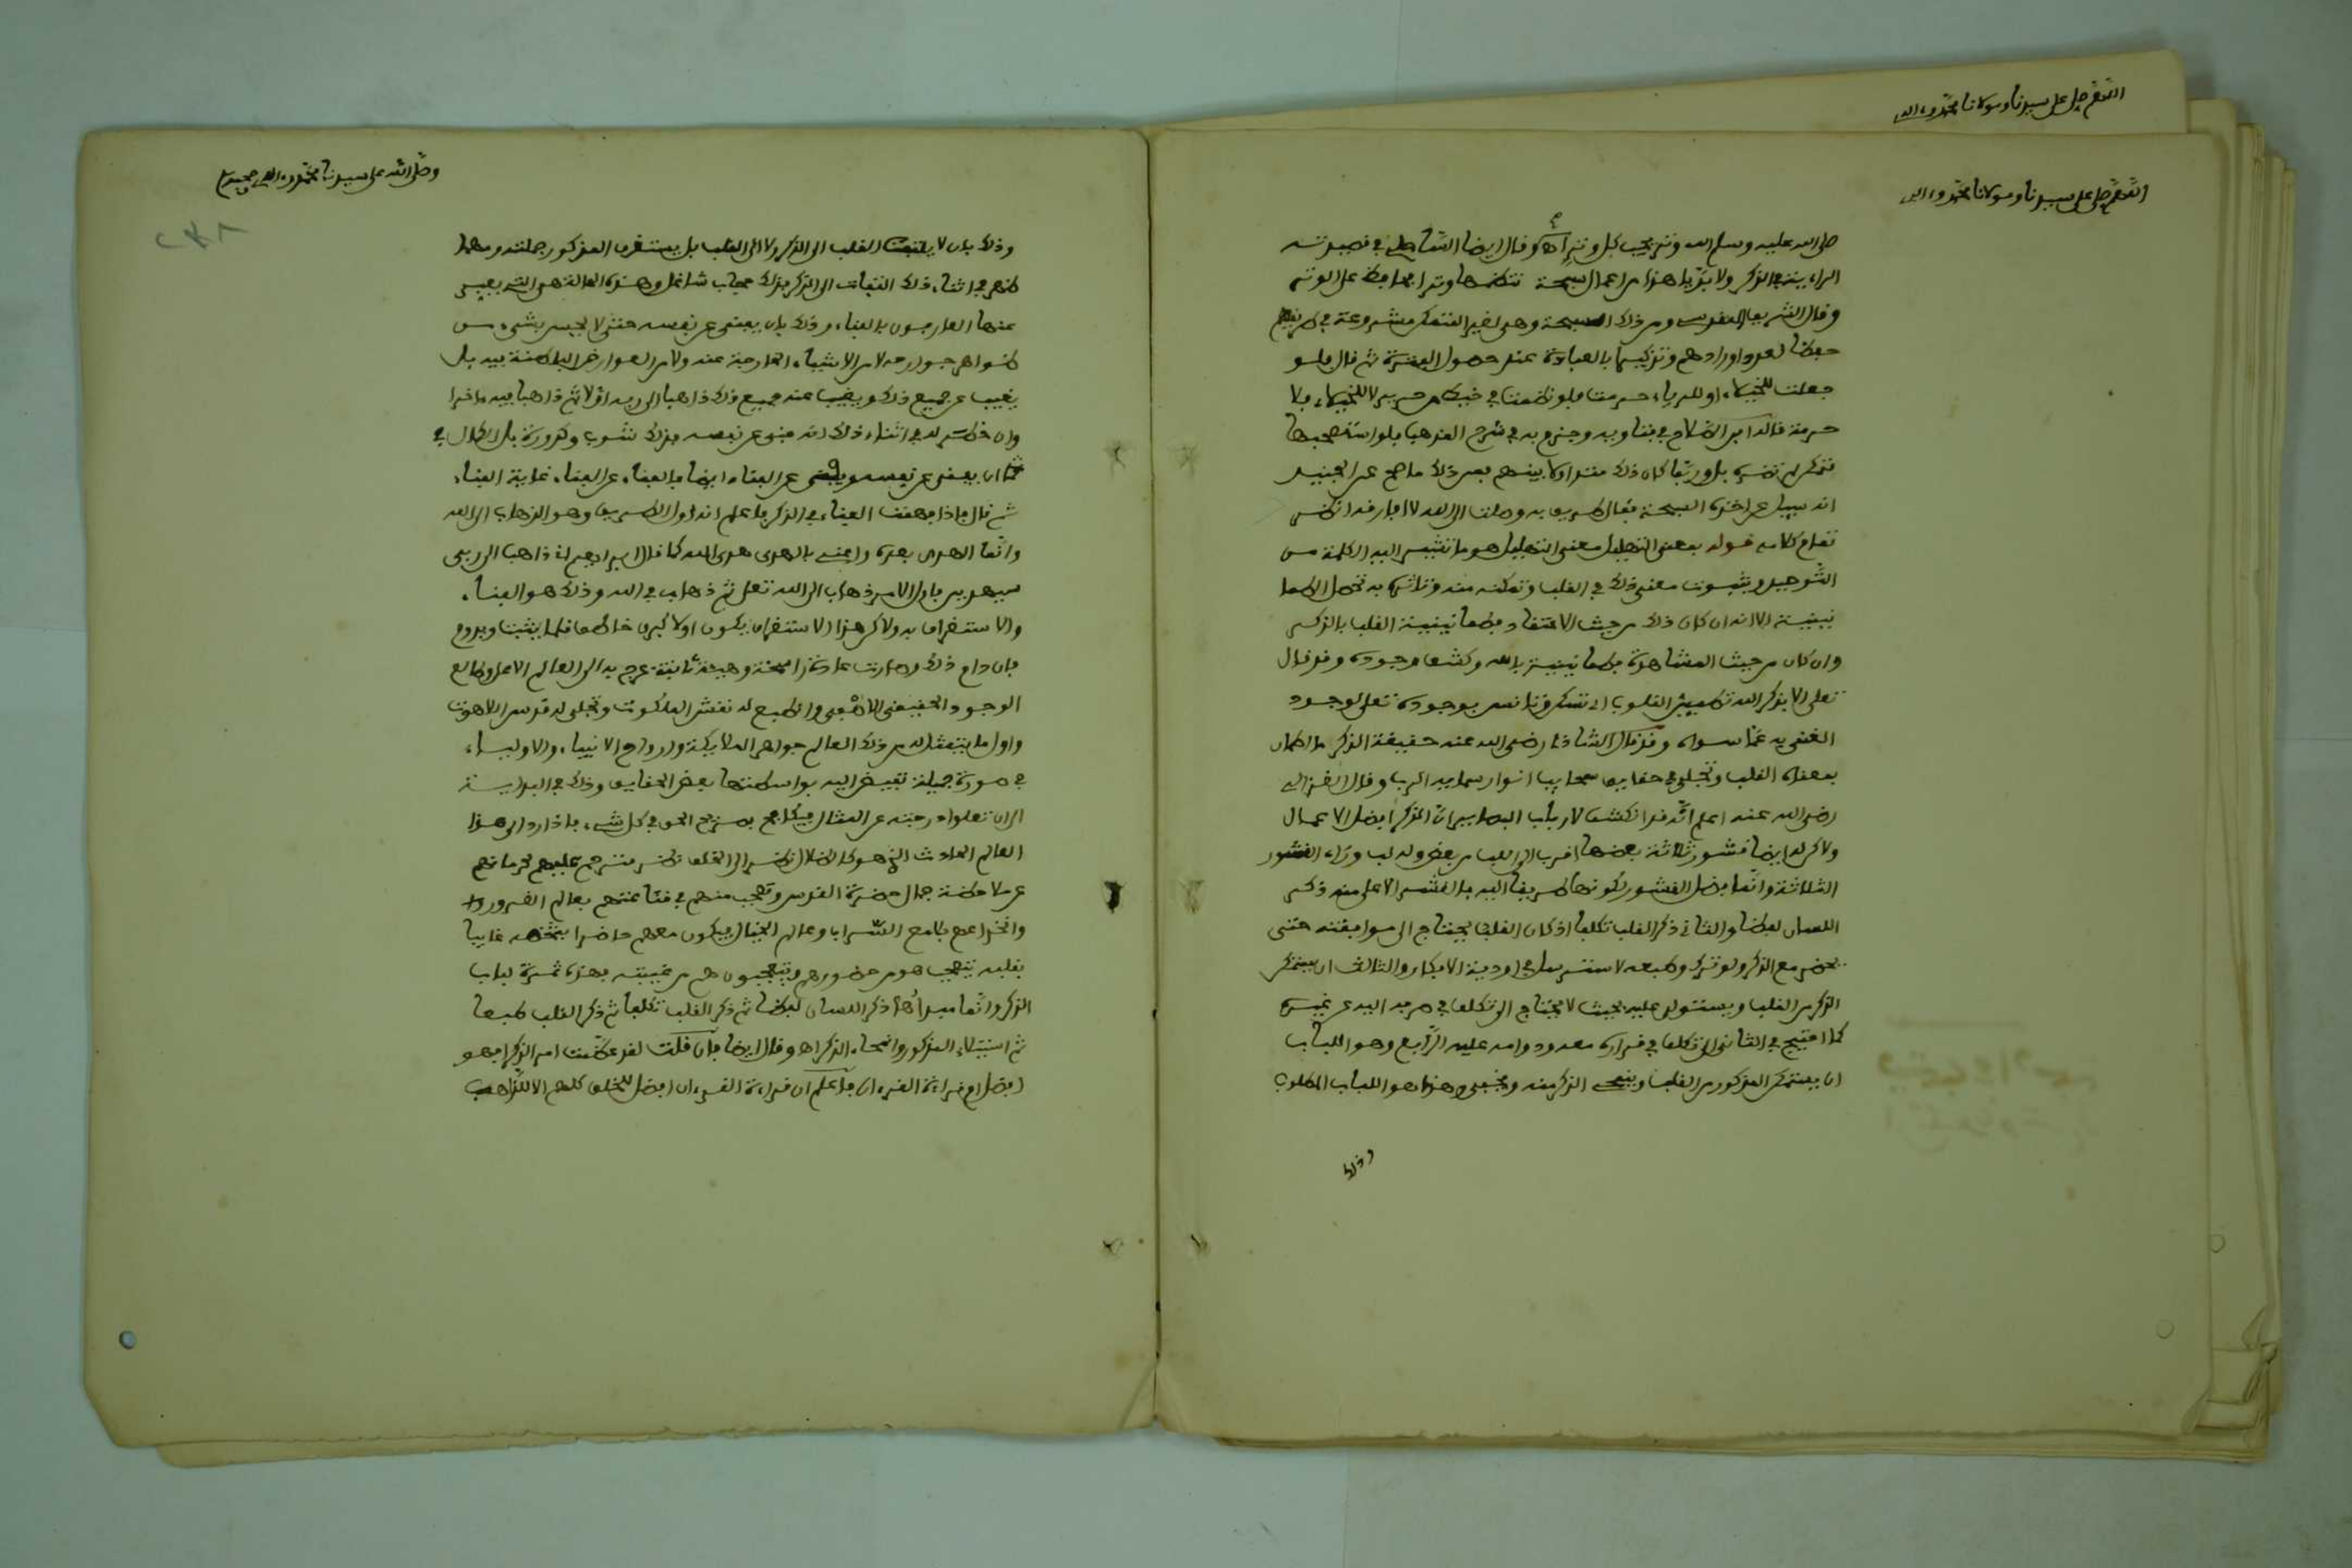 اللهم صل على سيدنا ومولانا محمد وءاله
اللهم صل على سيدنا ومولانا محمد وءاله
صلى الله عليه وسلم الله وتر يحب كل وتر اهـ وقال ايضا الساحلي في قصيدته
الراءيية في الذكر ولا بد يا هذا من اعمال سبحة تنظمها وترا محافظ على الوتر
وقال الشريف القدوسي ومن ذلك السبحة وهي لغير المتمكن مشروعة في طريقهم
حفظا لعدد اورادهم وتذكيرها بالعبادة عند حصول الفترة ثم قال فلو
جعلت للخيلاء او للرياء حرمت فلو نظمت في خيط من حرير لا للخيلاء فلا
حرمة قاله ابن الصلاح في فتاويه وجزم به في شرح المذهب فلو استصحبها
تذكر لم تضره بل وربما كان ذلك متداولا بينهم بعد ذلك ما صح عن الجنيد
انه سيل عن اخذه السبحة فقال طريق به وصلت الى الله لا افارقه انظر
تمام كلامه قوله بمعنى التهليل معنى التهليل هو ما تشير اليه الكلمة من
التوحيد وبثبوت معنى ذلك في القلب وتمكنه منه وتاثره به تحصل الطما
نينية الا انه ان كان ذلك من حيث الاعتقاد فطمانينية القلب بالذكر
وان كان من حيث المشاهدة فطمانينية بالله وكشف وجوده وقد قال
تعلى الا بذكر الله تطمين القلوب اي تسكن وتانس بوجوده تعلى لوجود
الغنى به عما سواه وقد قال الشاذلي رضي الله عنه حقيقة الذكر ما اطمان
بمعناه القلب وتجلى في حقايق سحايب انوار سمايه الرب وقال الغزالي
رضي الله عنه اعلم انه قد انكشف لارباب البصاير ان الذكر افضل الاعمال
ولاكن له ايضا قشور ثلاثة بعضها اقرب الى اللب من بعض وله لب وراء القشور
الثلاثة وانما فضل القشور لكونها طريقا اليه فالقشر الاعلى منه ذكر
اللسان لفظا والثاني ذكر القلب تكلفا اذ كان القلب يحتاج الى موافقته حتى
يحضر مع الذكر ولو ترك وطبعه لاسترسل في اودية الافكار والثالث ان يتمكن
الذكر من القلب ويستولي عليه بحيث لا يحتاج الى تكلف في صرفه اليه عن غيره
كما احتيج في الثاني الى تكلف في قراره معه ودوامه عليه الرابع وهو اللباب
ان يستمكن المذكور من القلب وينمحي الذكر منه ويخفى وهذا هو اللباب المطلوب
وذلك
وصلى الله على سيدنا محمد وءاله وصحبه
وذلك بان لا يلتفت القلب الى الذكر ولا الى القلب بل يستغرق المذكور جملته ومهما
ظهر في اثناء ذلك التفات الى الذكر فذلك حجاب شاغل وهذه الحالة هي التي يعبر
عنها العارفون بالفناء وذلك بان يفنى عن نفسه حتى لا يحس بشيء من
ظواهر جوارحه لا من الاشياء الخارجة عنه ولا من العوارض الباطنة فيه بل
يغيب عن جميع ذلك ويغيب عنه جميع ذلك ذاهبا الى ربه اولا ثم ذاهبا فيه ءاخرا
وان خطر له في اثناء ذلك انه فنى عن نفسه فذلك شوب وكدورة بل الكمال في
ان يفنى عن نفسه ويفنى عن الفناء ايضا فالفناء عن الفناء غاية الفناء
ثم قال فاذا فهمت الفناء في الذكر فاعلم انه اول الطريق وهو الذهاب الى الله
وانما الهدى بعده واعني بالهدى هدى الله كما قال ابراهيم اني ذاهب الى ربي
سيهدين فاول الامر ذهاب الى الله تعلى ثم ذهاب في الله وذلك هو الفناء
والاستغراق به ولاكن هذا الاستغراق يكون اولا كبرق خاطف قلما يثبت ويدوم
فان دام ذلك وصارت عادة راسخة وهيئة ثابتة عرج به الى العالم الاعلى وطالع
الوجود الحقيقي الاصفى وانطبع له نقش الملكوت وتجلى له قدس اللاهوت
واول ما يتمثل له من ذلك العالم جواهر الملايكة وارواح الانبياء والاولياء
في صورة جميلة تفيض اليه بواسطتها بعض الحقايق وذلك في البداية
الى ان تعلو درجته عن المثال فيكافح بصريح الحق في كل شيء فاذا رد الى هذا
العالم الحادث الذي هو كالظلال نظر الى الخلق نظر مترحم عليهم لحرمانهم
عن ملاحظة جمال حضرة القدس وتعجب منهم في قناعتهم بعالم الغرور
وانخداعهم بلامع السراب وعالم الخيال فيكون معهم حاضرا بشخصه غايبا
بقلبه يتعجب هو من حضورهم ويتعجبون هم من غيبته فهذه ثمرة لباب
الذكر وانما مبدأها ذكر اللسان لفظا ثم ذكر القلب تكلفا ثم ذكر القلب طبعا
ثم استيلاء المذكور وانمحاء الذكر اهـ وقال ايضا فان قلت لقد عظمت امر الذكر افهو
افضل ام قراءة القرءان فاعلم ان قراءة القرءان افضل للخلق كلهم الا للذاهب